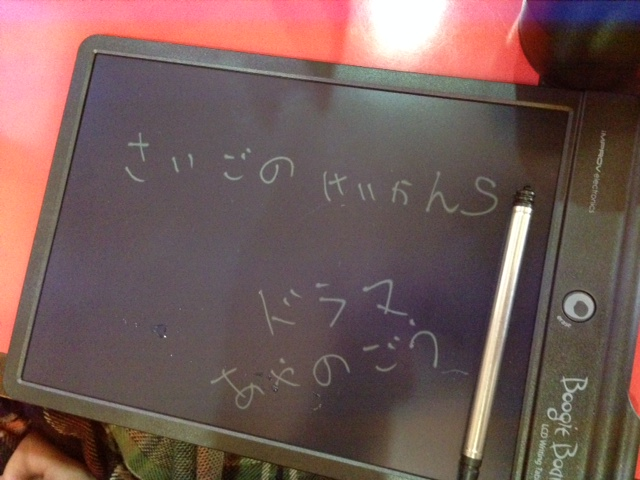 さいごの けいかんS
ドラマ
あやのごう
IMPROV electronics
erase
Boogie Boa
LCD Writing Tab